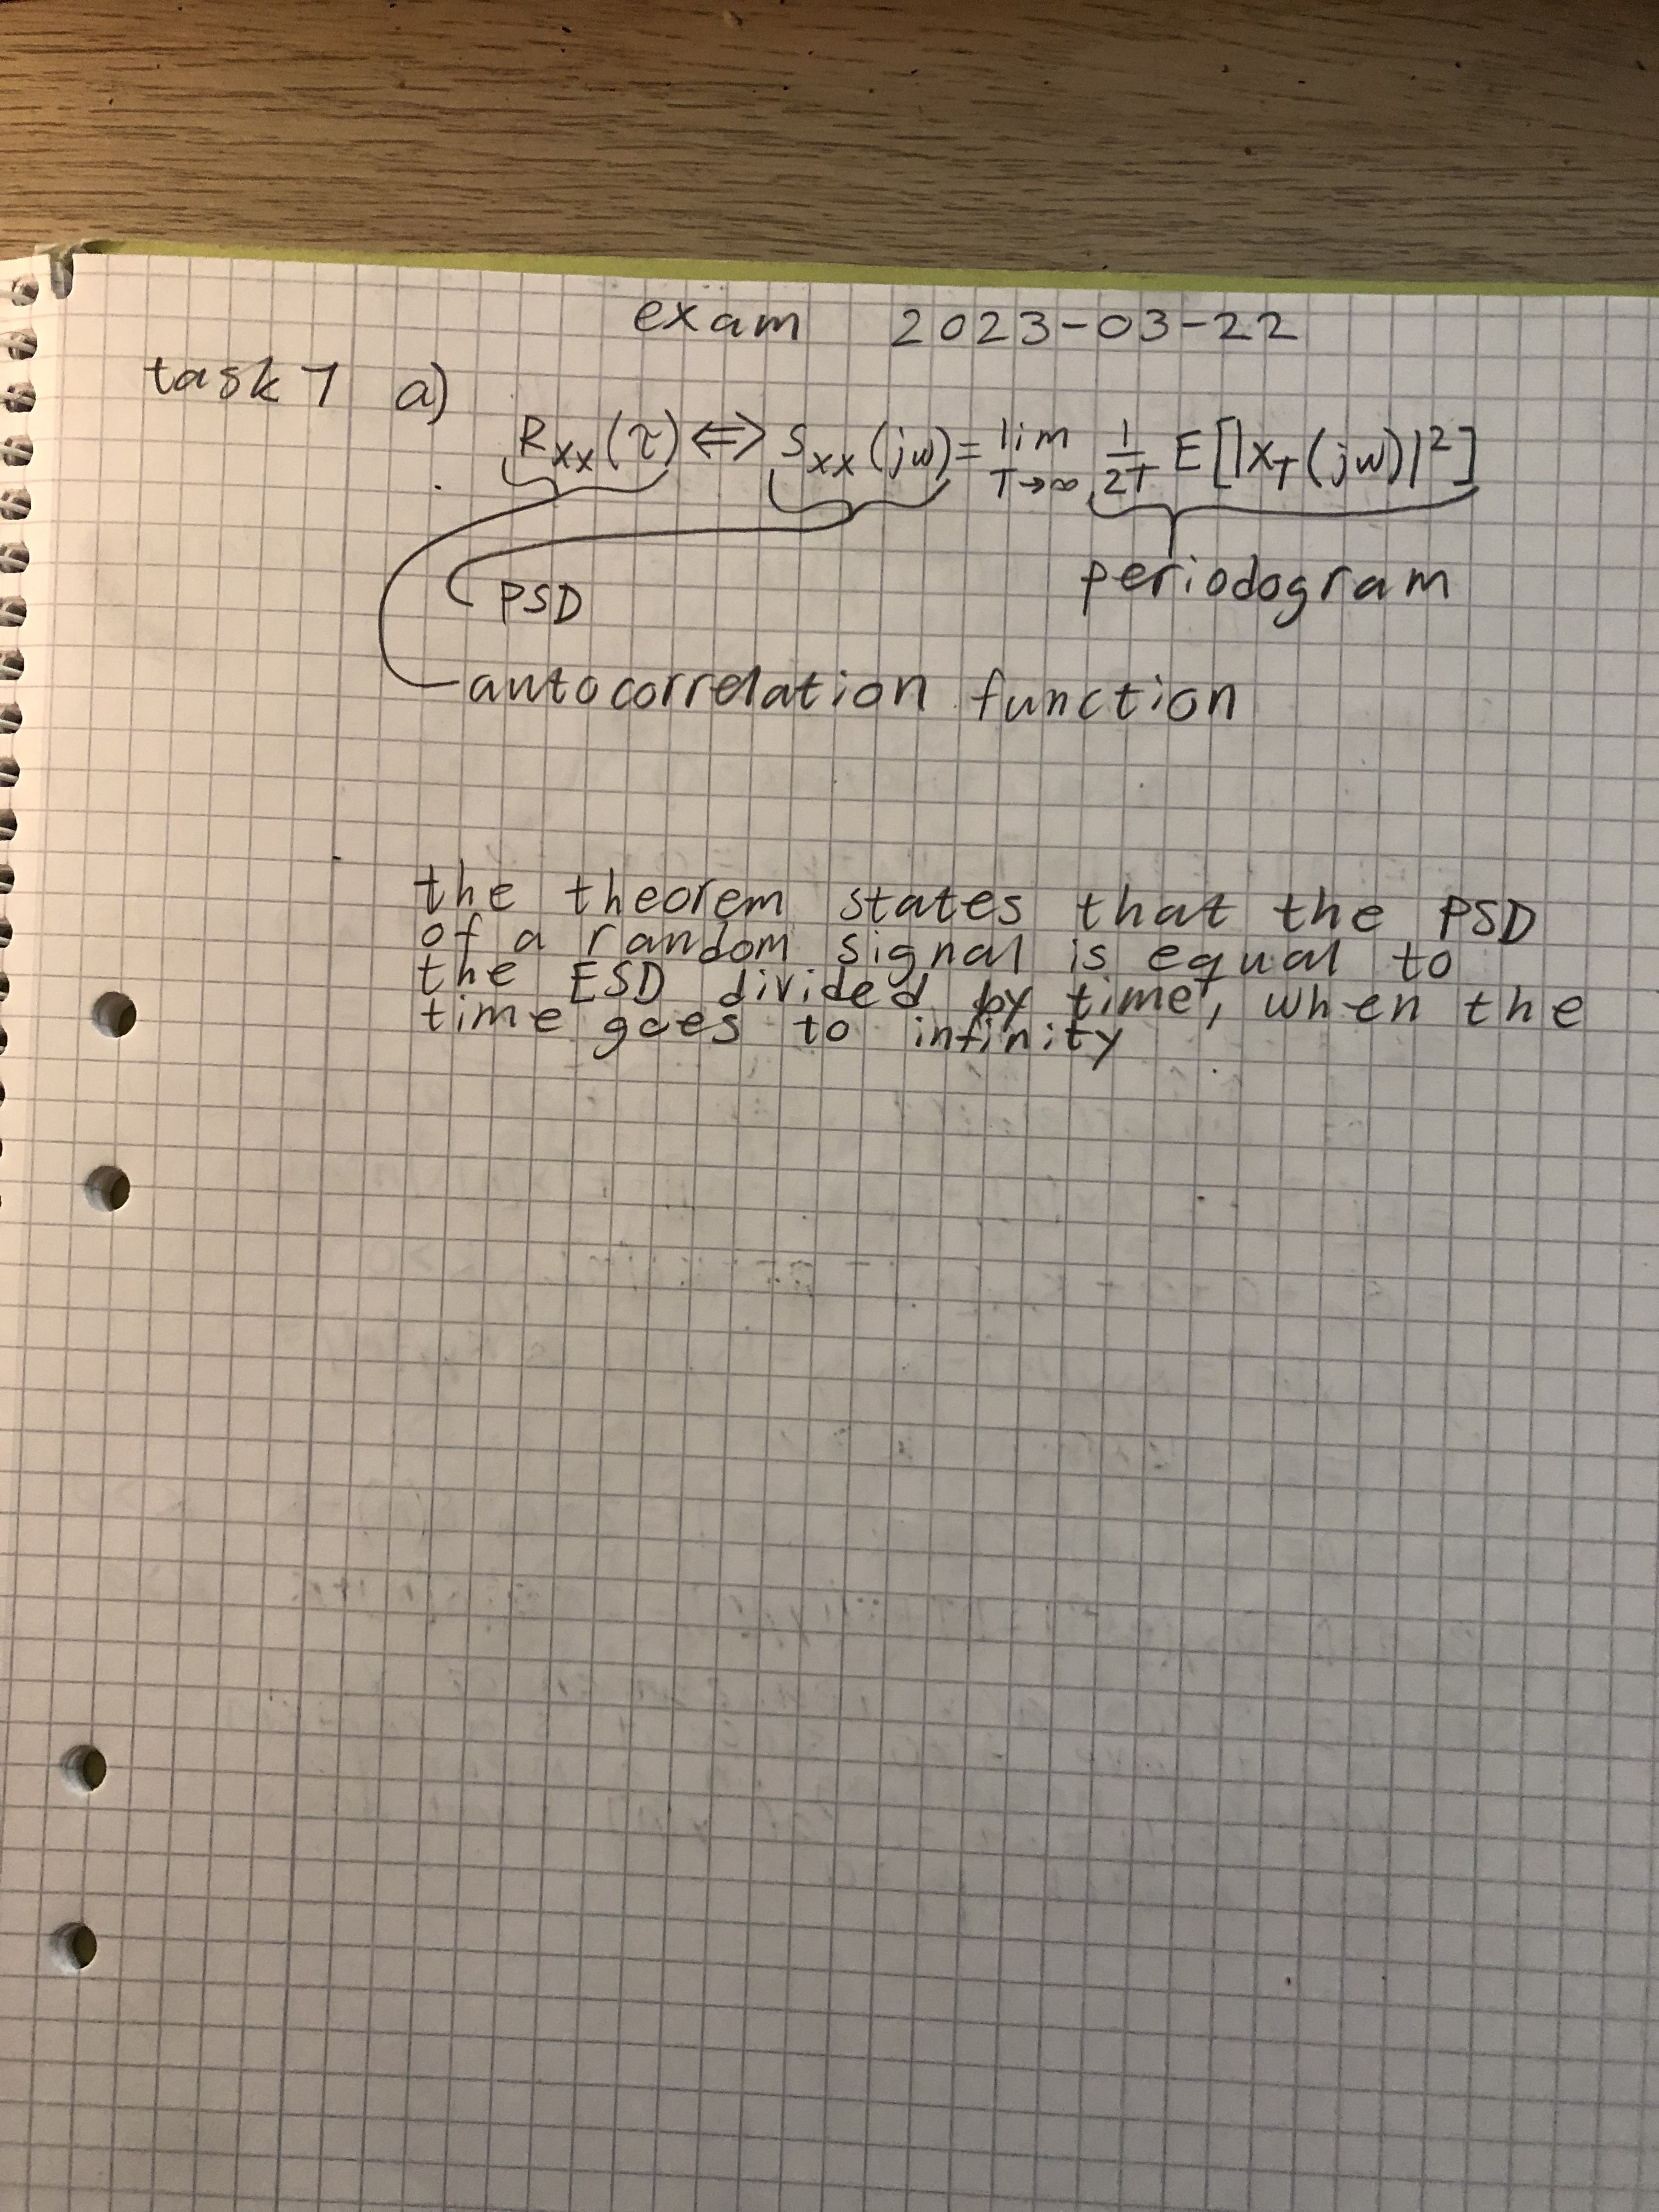 exam 2023-03-22
task 7 a)
R_xx(τ) ⇔ S_xx(jω) = lim T→∞ 1/2T E[|X_T(jω)|²]
PSD
periodogram
autocorrelation function
the theorem states that the PSD
of a random signal is equal to
the ESD divided by time, when the
time goes to infinity